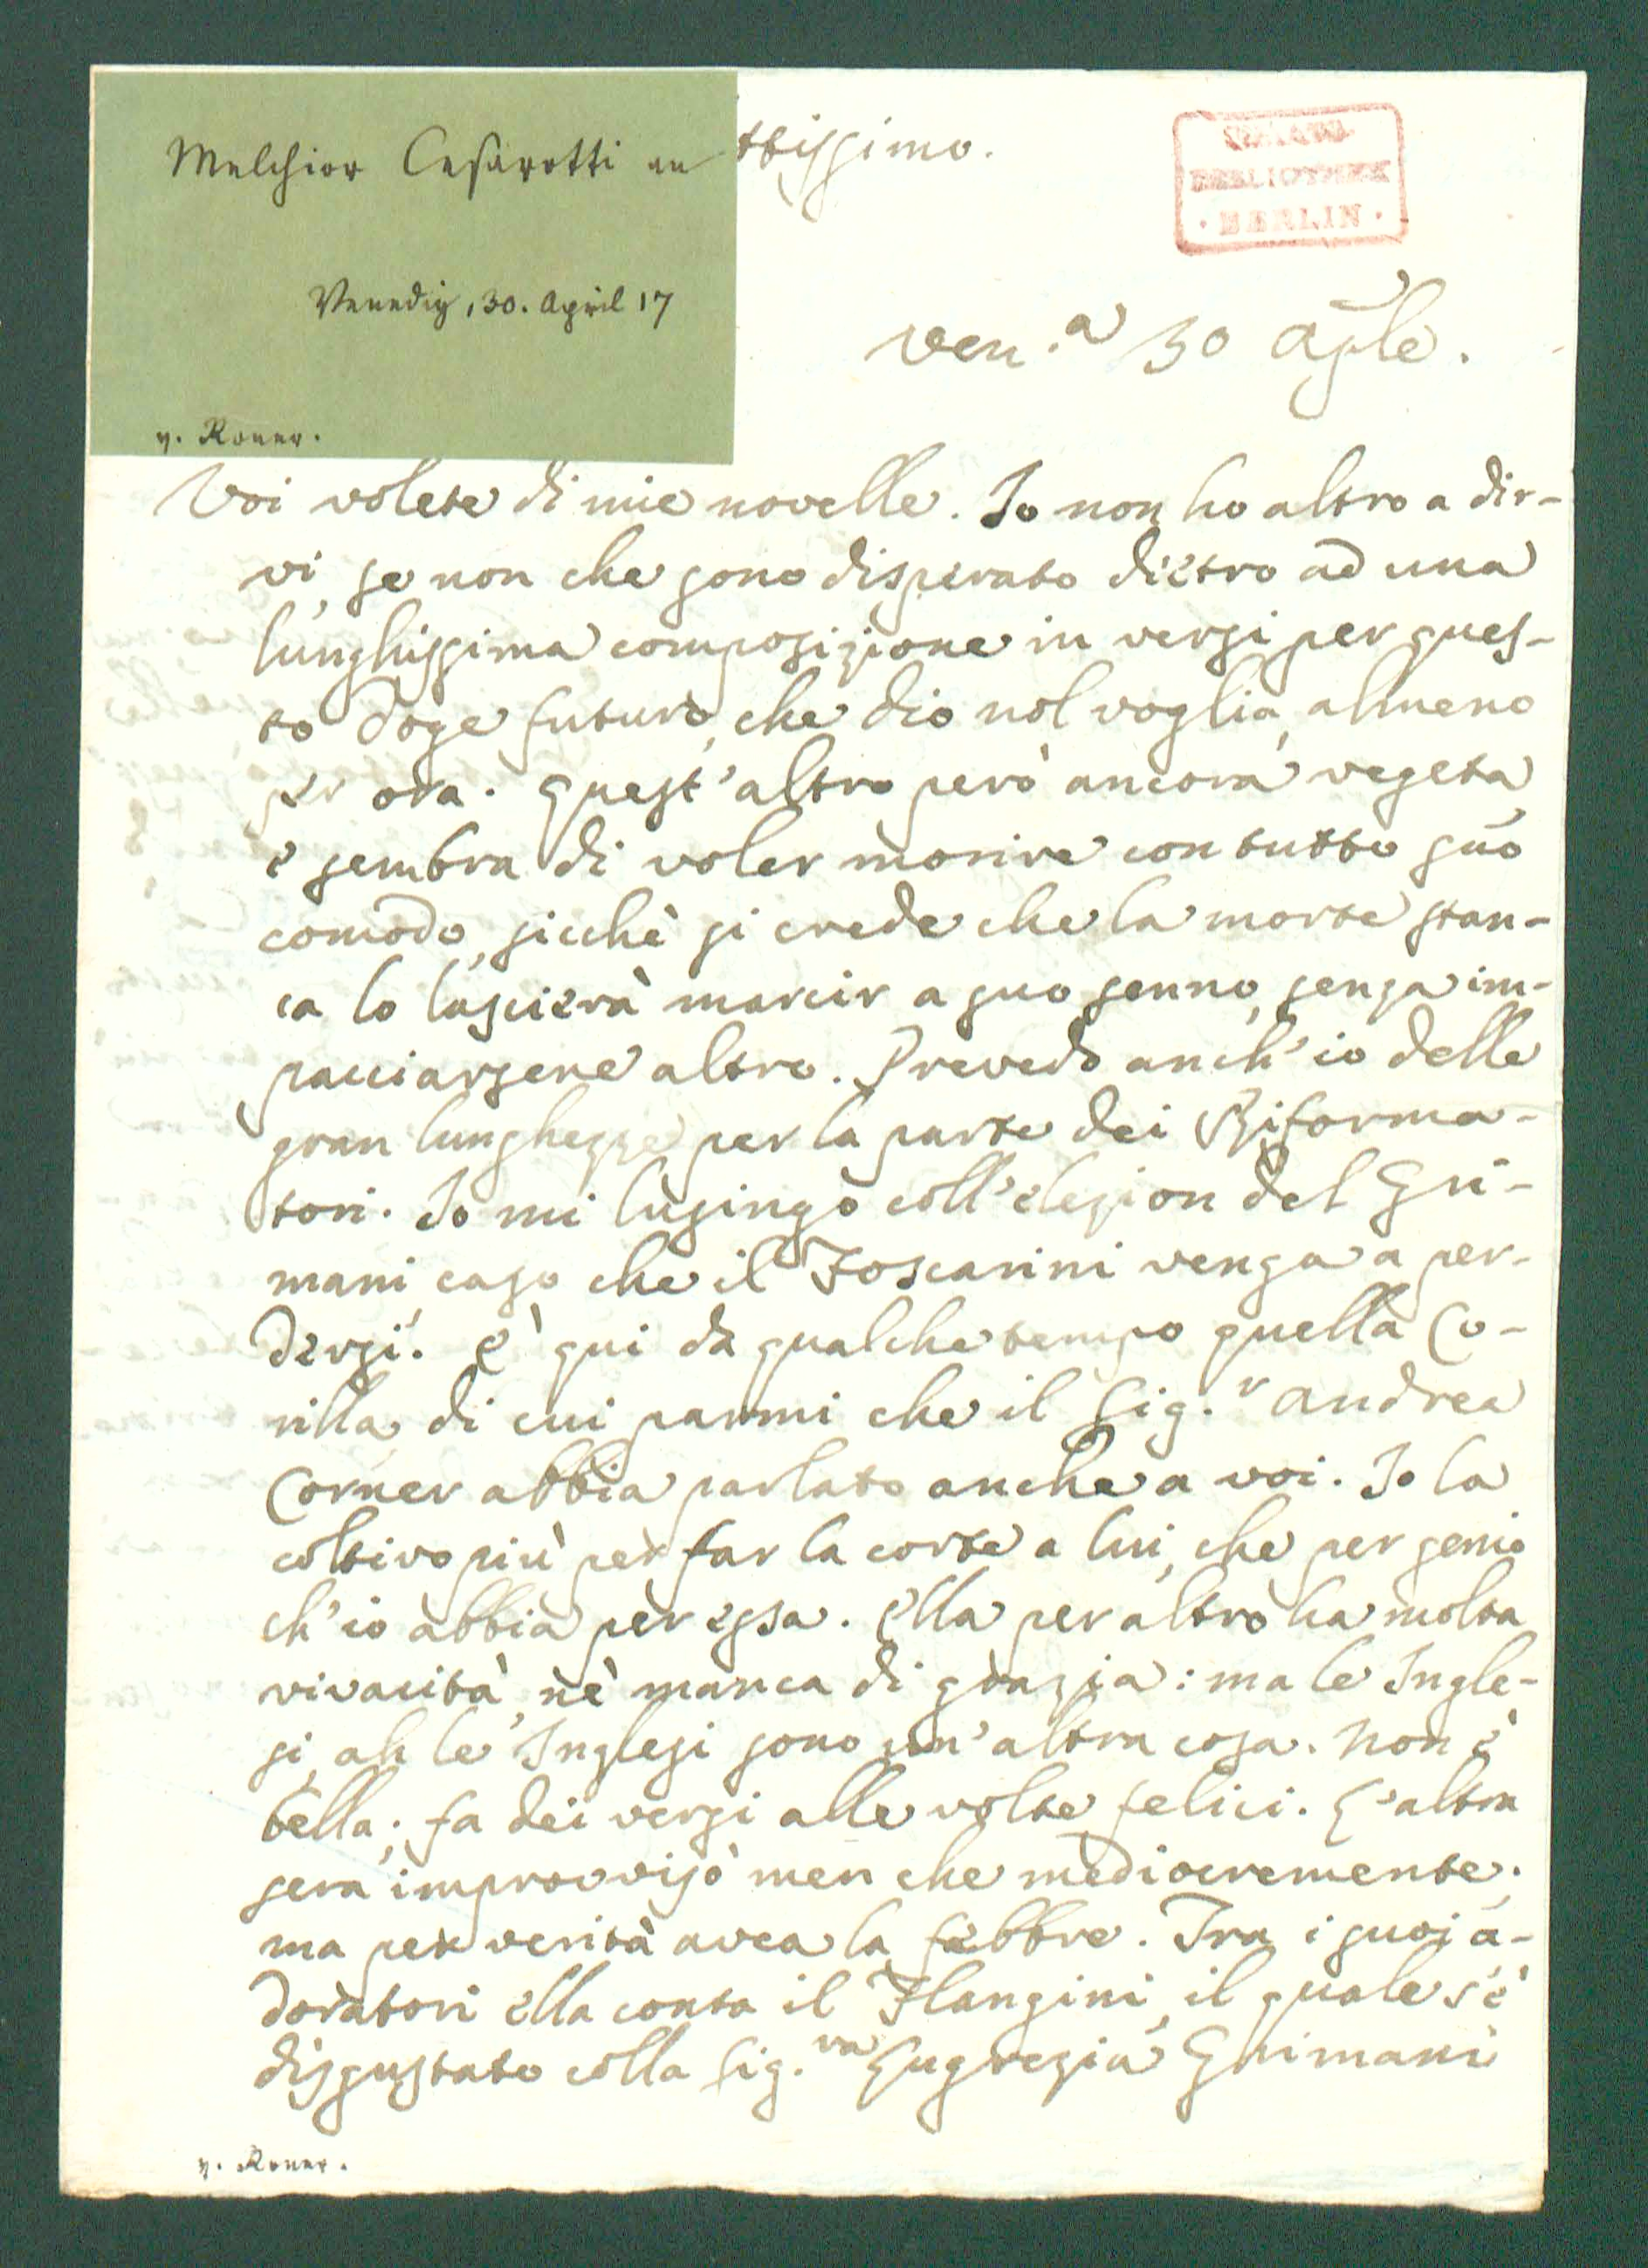 Melchior Cesarotti an
ttissimo.
BIBLIOTHEK
· BERLIN ·
Venedig, 30. April 17
Ven.a 30 Aple.
v. Roner.
Voi volete di mie novelle. Io non ho altro a dir-
vi, se non che sono disperato dietro ad una
lunghissima composizione in versi per ques-
to Doge futuro, che dio nol voglia, almeno
per ora. Quest'altro però ancora vegeta,
e sembra di voler morire con tutto suo
comodo, sicchè si crede che la morte stan-
ca lo lascierà marcir a suo senno, senza im-
pacciarsene altro. Prevedo anch'io delle
gran lunghezze per la parte dei Riforma-
tori. Io mi lusingo coll'elezion del Gri-
mani caso che il Foscarini venga a per-
dersi. è qui da qualche tempo quella Co-
rilla, di cui parmi che il Sig.r Andrea
Corner abbia parlato anche a voi. Io la
coltivo più per far la corte a lui, che per genio
ch'io abbia per essa. Ella per altro ha molta
vivacità, nè manca di grazia: ma le Ingle-
si, ah le Inglesi sono un'altra cosa. Non è
bella; fa dei versi alle volte felici. L'altra
sera improvvisò men che mediocremente;
ma per verità avea la febbre. Tra i suoi a-
doratori ella conta il Flangini, il quale s'è
disgustato colla Sig.ra Lugrezia Grimani
v. Roner.